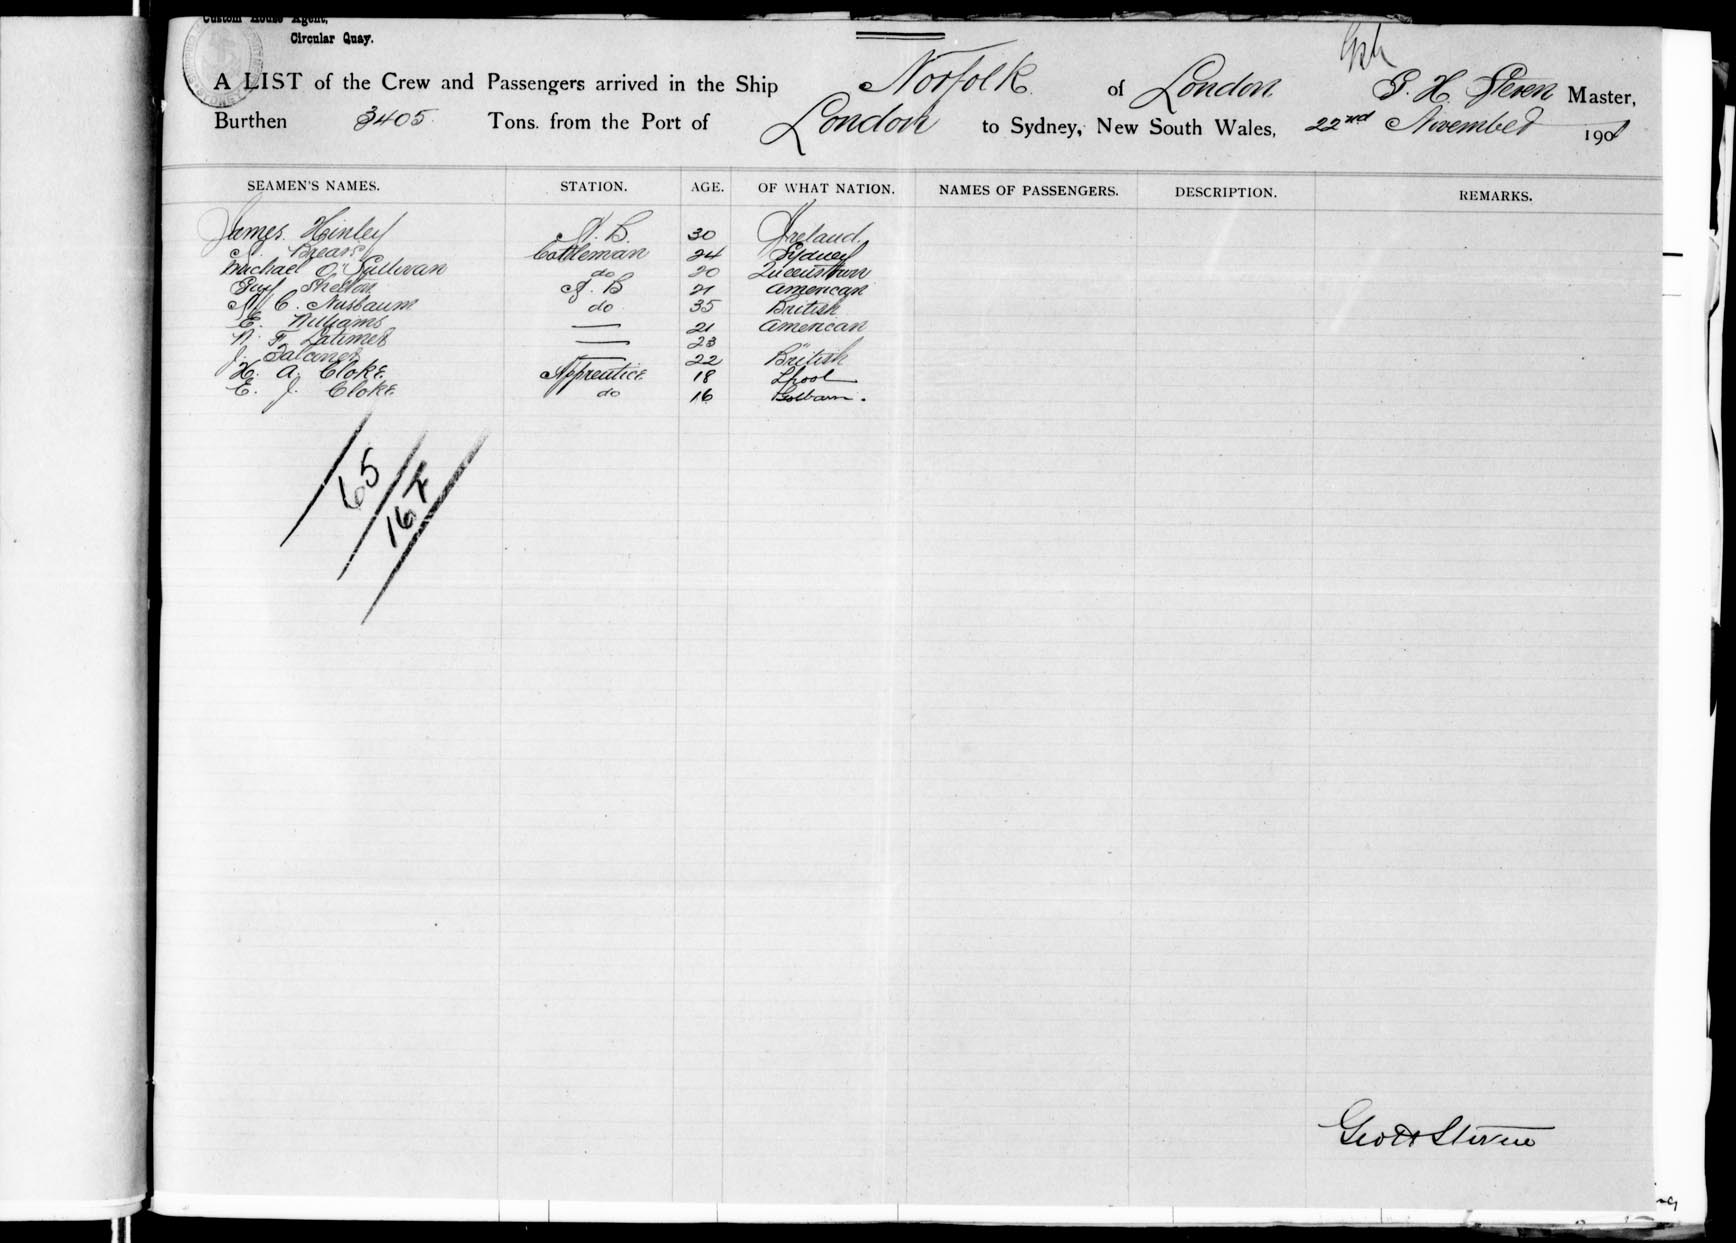 Custom House Agent,
Circular Quay.
A LIST of the Crew and Passengers arrived in the Ship Norfolk of London G. H. Steven Master,
Burthen 3405 Tons. from the Port of London to Sydney, New South Wales, 22nd November 1901
SEAMEN'S NAMES. STATION. AGE. OF WHAT NATION. NAMES OF PASSENGERS. DESCRIPTION. REMARKS.
James Hinley A. B. 30 Ireland.
Cattleman 24 Sydney
Michael O'Sullivan do 20 Queenstown
Shelton A. B 21 American
C. Nusbaum do 35 British
E. Williams — 21 American
F. Latimer — 23 "
J. Falconer — 22 British
H. A. Cloke Apprentice 18 Lpool
E. J. Cloke do 16 Golbarn.
65
167
Geo H Steven